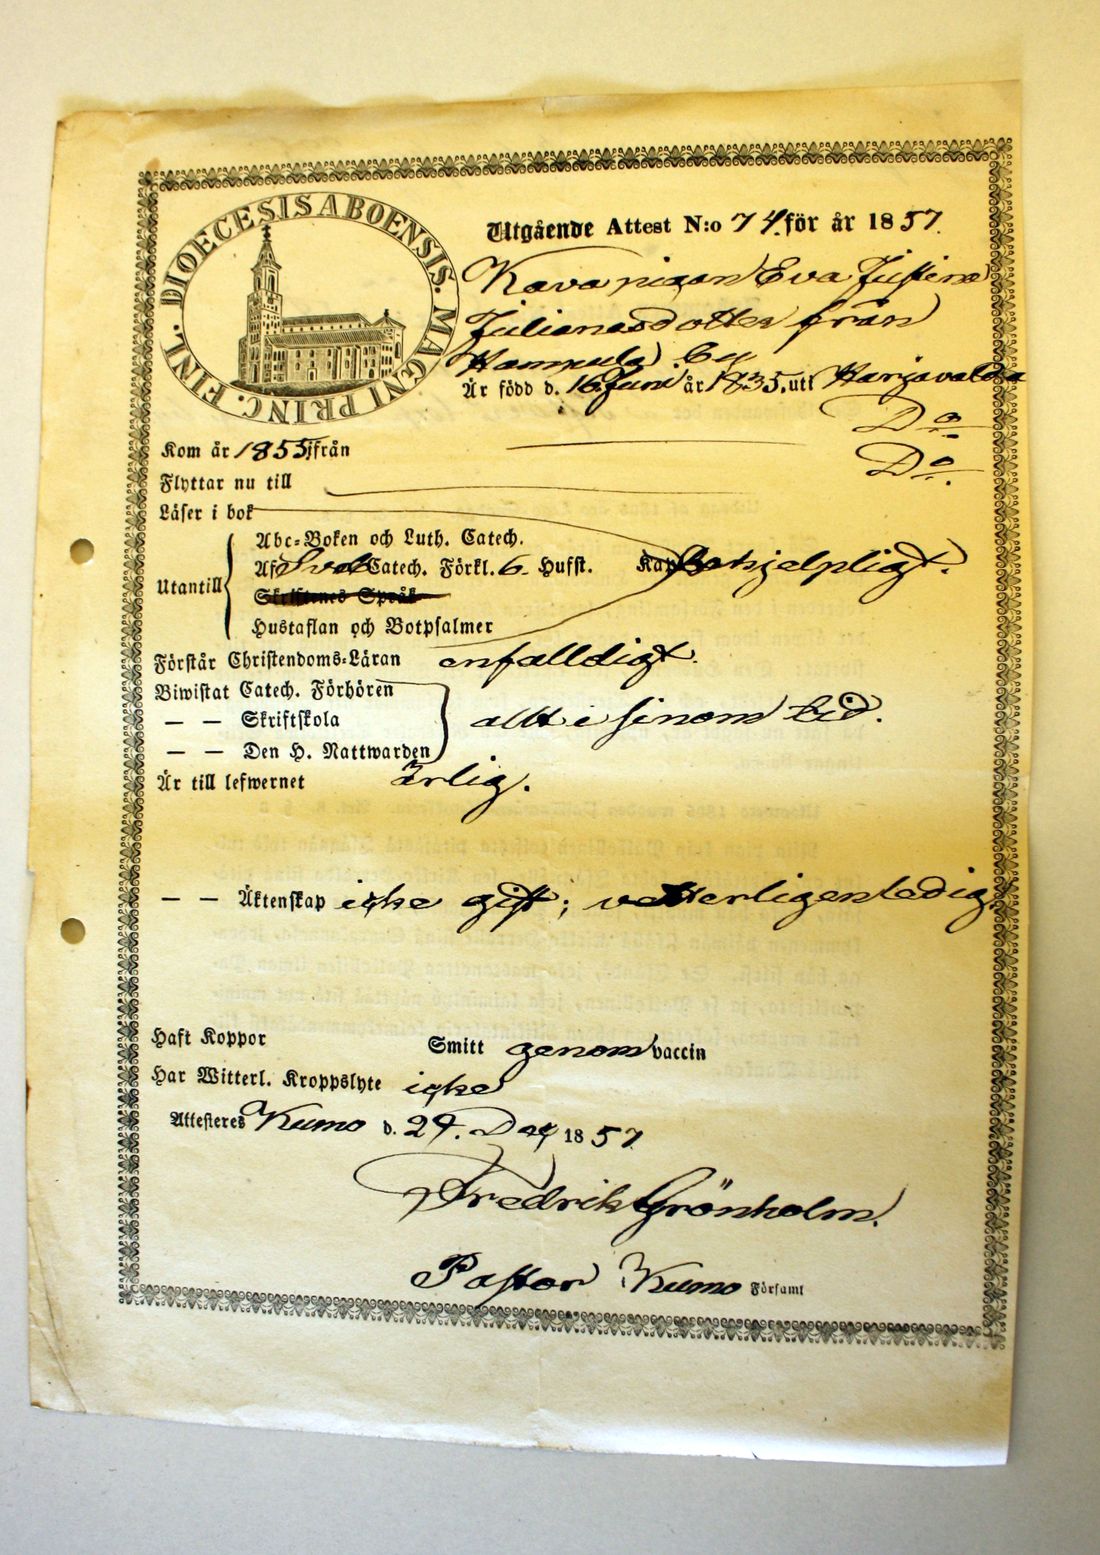 DIOECESIS ABOENSIS. MAGNI PRINC. FINL.
Utgående Attest N:o 74. för år 1857.
pigan Eva Justina
Julianasdotter från
by
Är född d. 16 Juni år 1835. uti Harjavalda
Kom år 1855 ifrån Do
Flyttar nu till Do
Läser i bok
Utantill
Abc-Boken och Luth. Catech.
Af Sveb Catech. Förkl. 6. Hufst. Kap behjelpligt.
Skriftenes Språk
Hustaflan och Botpsalmer
Förstår Christendoms-Läran enfalldigt.
Biwistat Catech. Förhören
— — Skriftskola allt i sinom tid.
— — Den H. Nattwarden
Är till lefwernet Ärlig.
— — Äktenskap icke gift; vetterligen ledig.
Haft Koppor Smitt genom vaccin
Har Witterl. Kroppslyte icke
Attesteres Kumo d. 24. 1857
Fredrik Grönholm.
Pastor Kumo Församl